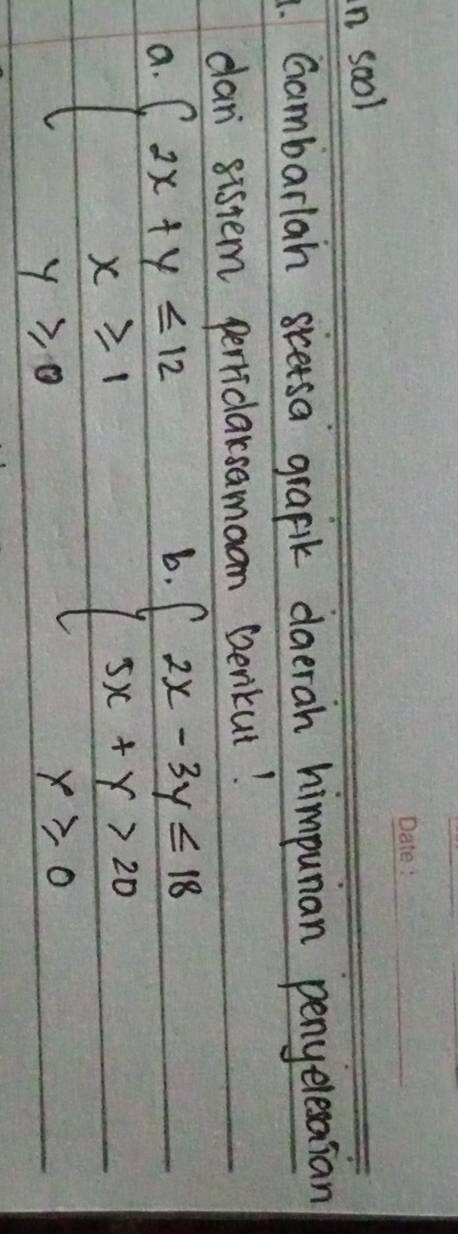 n soal
1. Gambarlah sketsa grafik daerah himpunan penyelesaian
dari sistem pertidaksamaan berikut!
a. { 2x + y ≤ 12 b. { 2x - 3y ≤ 18
x ≥ 1 5x + y > 20
y ≥ 0 y ≥ 0
Date: